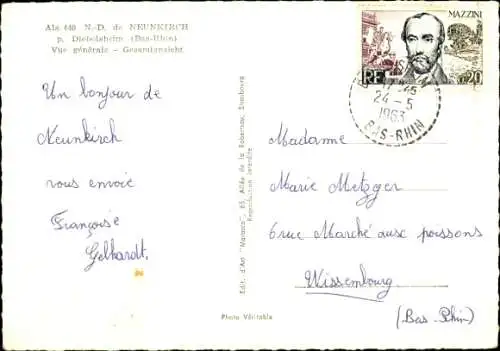 Als 640 N.-D. de NEUNKIRCH
p. Diebolsheim (Bas-Rhin)
Vue générale - Gesamtansicht
Un bonjour de
Neunkirch
vous envoie
Françoise
Gelhardt.
Edit. d'Art "Marasco", 65, Allée de la Robertsau, Strasbourg
Reproduction interdite
Photo Véritable
MAZZINI
RF
0,20
24 - 5
1963
BAS-RHIN
Madame
Marie Metzger
6 rue Marché aux poissons
Wissembourg
(Bas-Rhin)